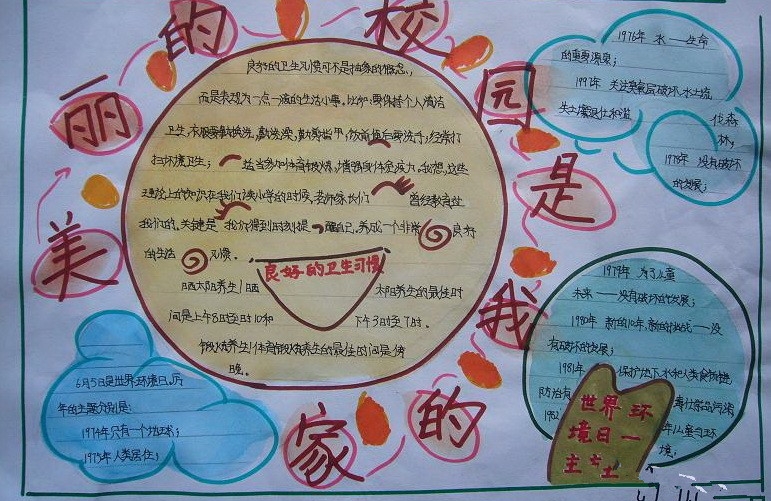 美丽的校园是我的家
良好的卫生习惯可不是抽象的概念.,
而是表现为一点一滴的生活小事。比如:要保持个人清洁
卫生,不服要勤换洗,勤洗澡,勤剪指甲,饭前便后要洗手,经常打
扫环境卫生; 适当参加体育锻炼,增强身体免疫力。我想,这些
理论上的知识在我们读小学的时候,老师家长们 曾经教育过
我们的。关键是 我们得到时刻提 醒自己,养成一个非常 良好
的生活 习惯。
良好的卫生习惯
晒太阳养生1晒 太阳养生的最佳时
间是上午8时至时10和 下午3时至7时。
锻炼养生1体育锻炼养生的最佳的间是傍
晚。
1976年 水——生命
的重要源泉;
1977年 关注臭氧层破坏、水土流
失土壤退化和滥
伐森
林;
1978年 没有破坏
的发展;
1979年 为了儿童
未来——没有破坏的发展;
1980年 新的10年,新的挑战——没
有破坏的发展;
1981年 保护地下水和人类食物链
防治有 毒化学品污染
1982
境;
世界环
境日一
主
6月5日是世界环境日,历
年的主题分别是:
1974年只有一个地球;
1975年人类居住;